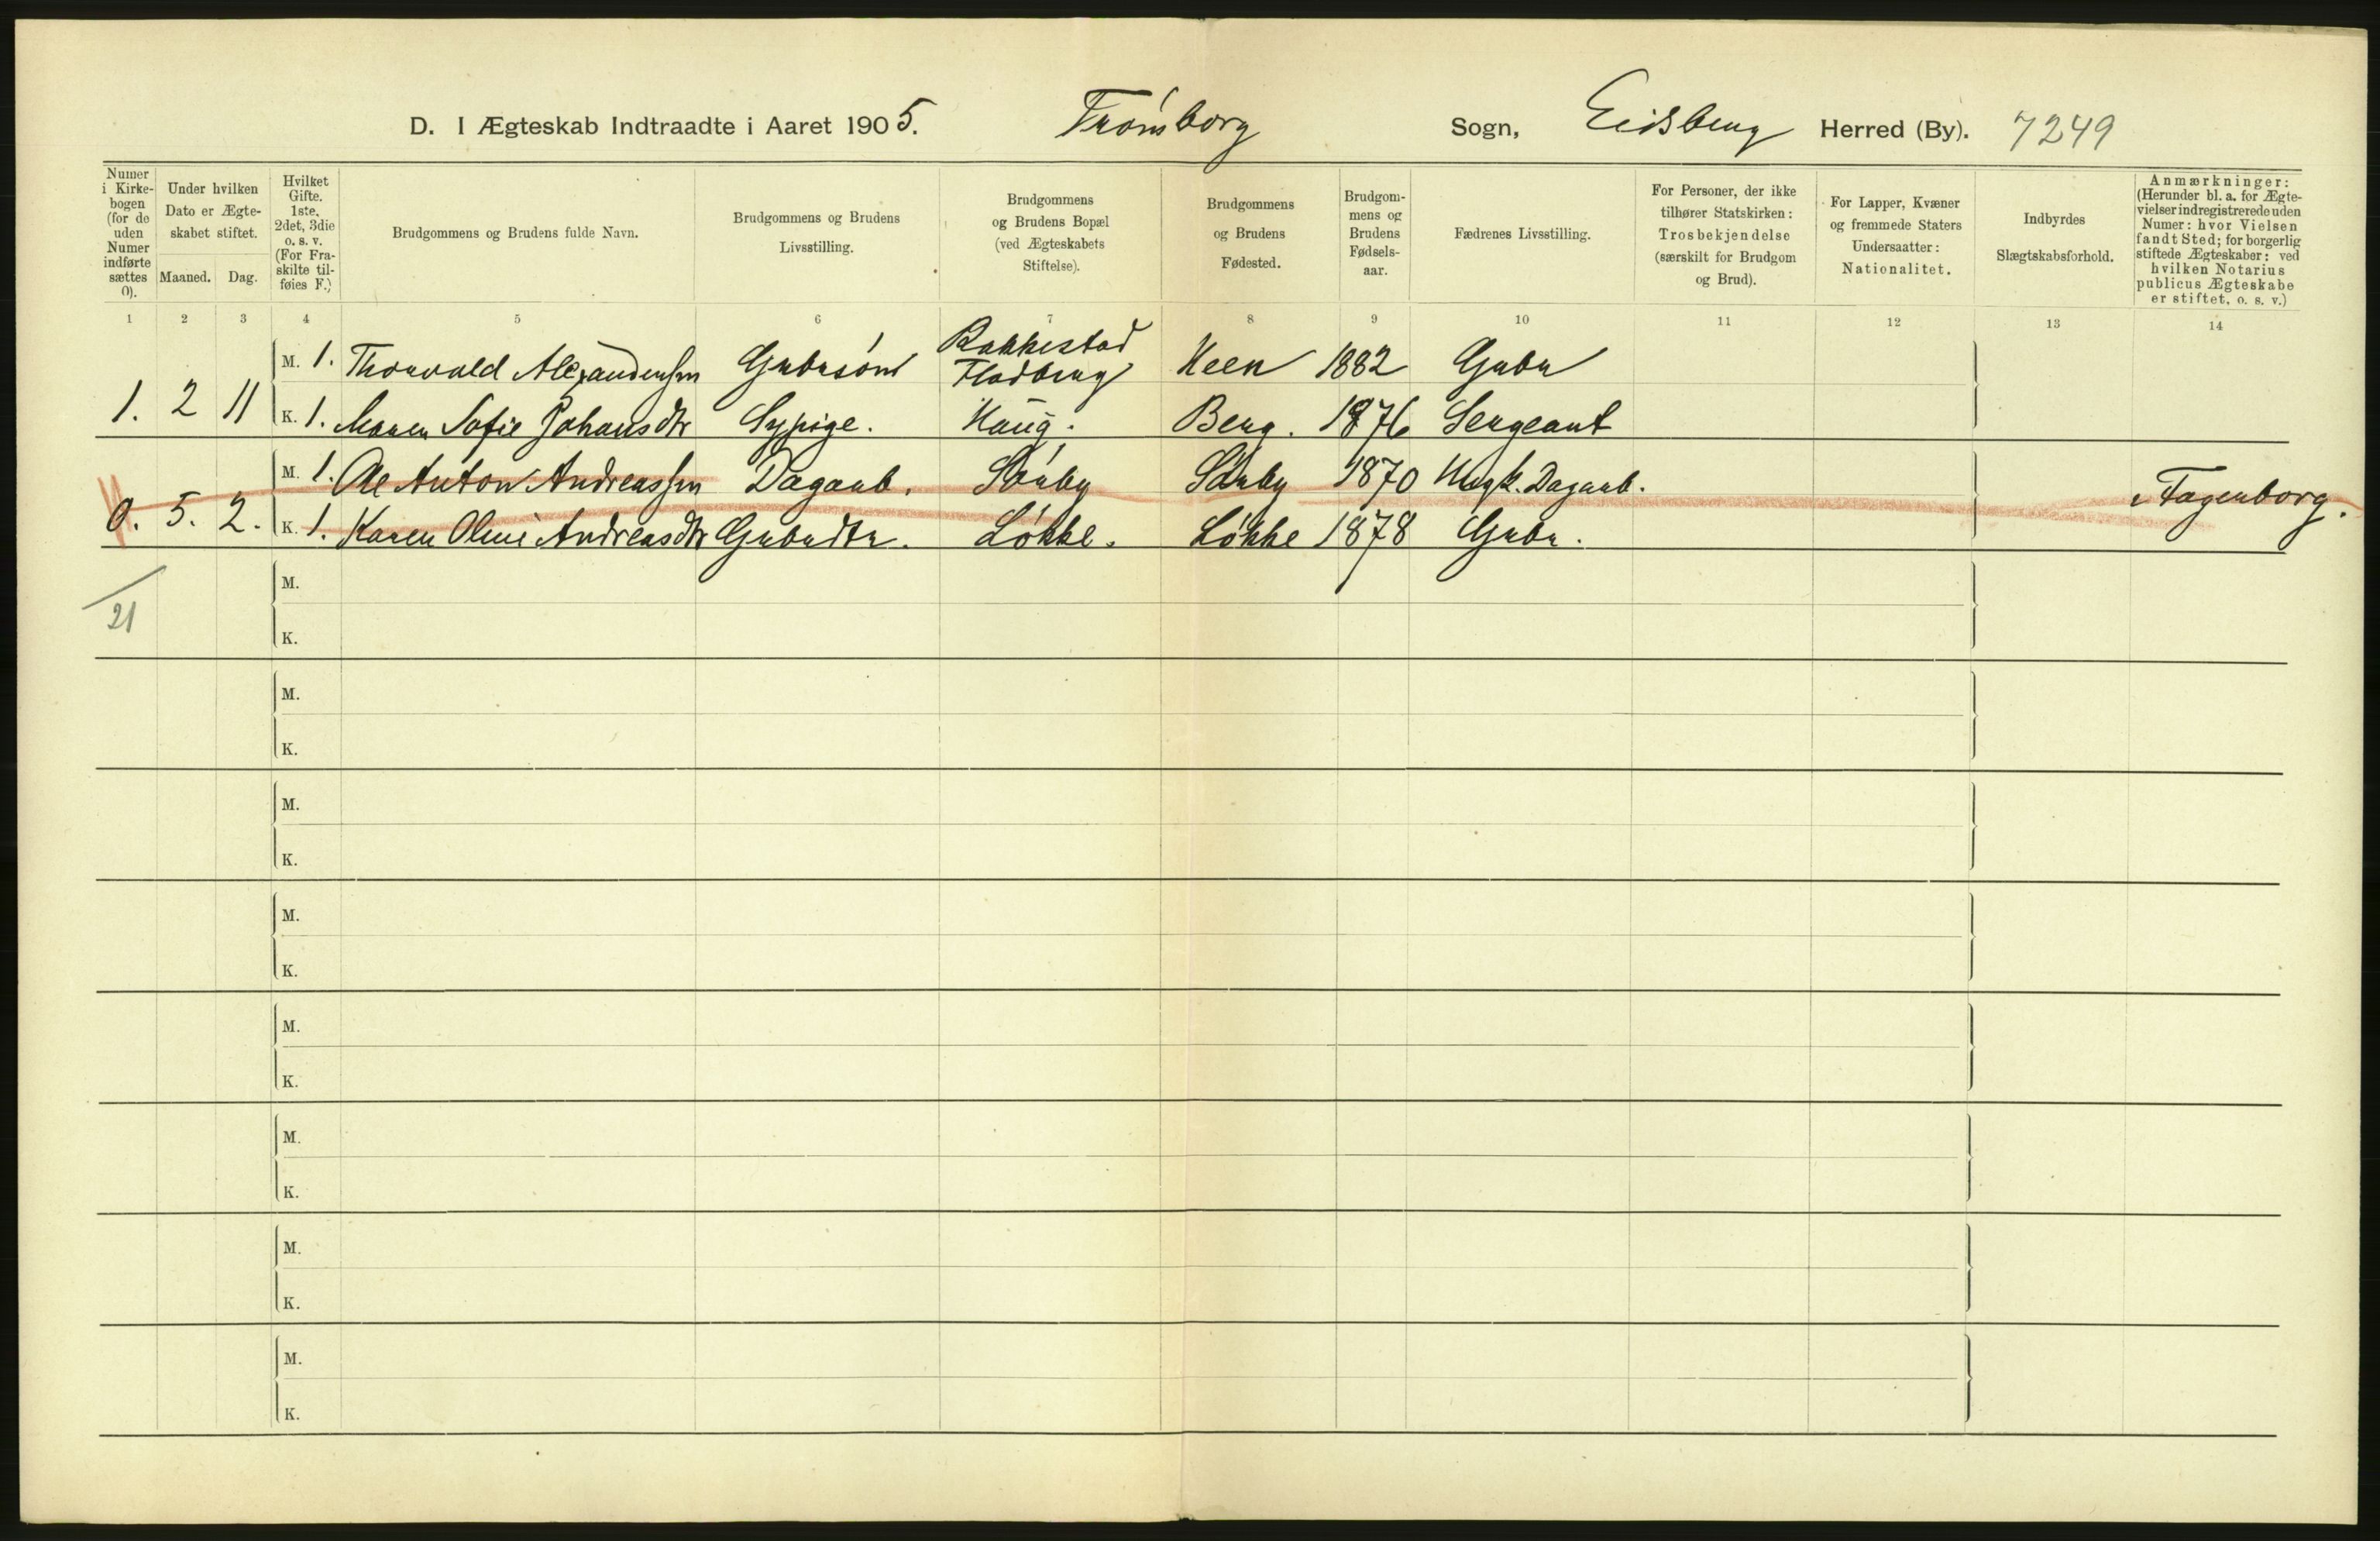 D. I Ægteskab Indtraadte i Aaret 1905. Trømborg Sogn, Eidsberg Herred (By). 7249
Numer i Kirkebogen (for de uden Numer indførte sættes 0).
Under hvilken Dato er Ægteskabet stiftet.
Maaned. Dag.
Hvilket Gifte. 1ste, 2det, 3die o. s. v. (For Fraskilte tilføies F.)
Brudgommens og Brudens fulde Navn.
Brudgommens og Brudens Livsstilling.
Brudgommens og Brudens Bopæl (ved Ægteskabets Stiftelse).
Brudgommens og Brudens Fødested.
Brudgommens og Brudens Fødselsaar.
Fædrenes Livsstilling.
For Personer, der ikke tilhører Statskirken: Trosbekjendelse (særskilt for Brudgom og Brud).
For Lapper, Kvæner og fremmede Staters Undersaatter: Nationalitet.
Indbyrdes Slægtskabsforhold.
Anmærkninger: (Herunder bl. a. for Ægtevielser indregistrerede uden Numer: hvor Vielsen fandt Sted; for borgerlig stiftede Ægteskaber: ved hvilken Notarius publicus Ægteskabe er stiftet, o. s. v.)
1 2 3 4 5 6 7 8 9 10 11 12 13 14
Rakkestad
M. 1. Thorvald Alexandersen Gbrsøn Fladberg Heen 1882 Gbr
1. 2 11 K. 1. Maren Sofie Johansdtr Sypige. Haug. Berg. 1876 Sergeant
M. 1. Ole Anton Andreassen Dagarb. Sørby Sørby 1870 Dagarb.
0. 5. 2. K. 1. Karen Oline Andreasdtr Gbrdtr. Løkke. Løkke 1878 Gbr. i Fagerborg.
M.
21
K.
M.
K.
M.
K.
M.
K.
M.
K.
M.
K.
M.
K.
M.
K.